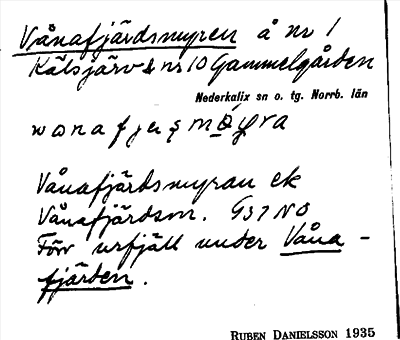 Vånafjärdsmyren å nr 1
Kälsjärv & nr 10 Gammelgården
Nederkalix sn o. tg. Norrb. län
Vånafjärdsmyran ek
Vånafjärdsm. G37 NO
Förr urfjäll under Våna-
fjärden.
RUBEN DANIELSSON 1935